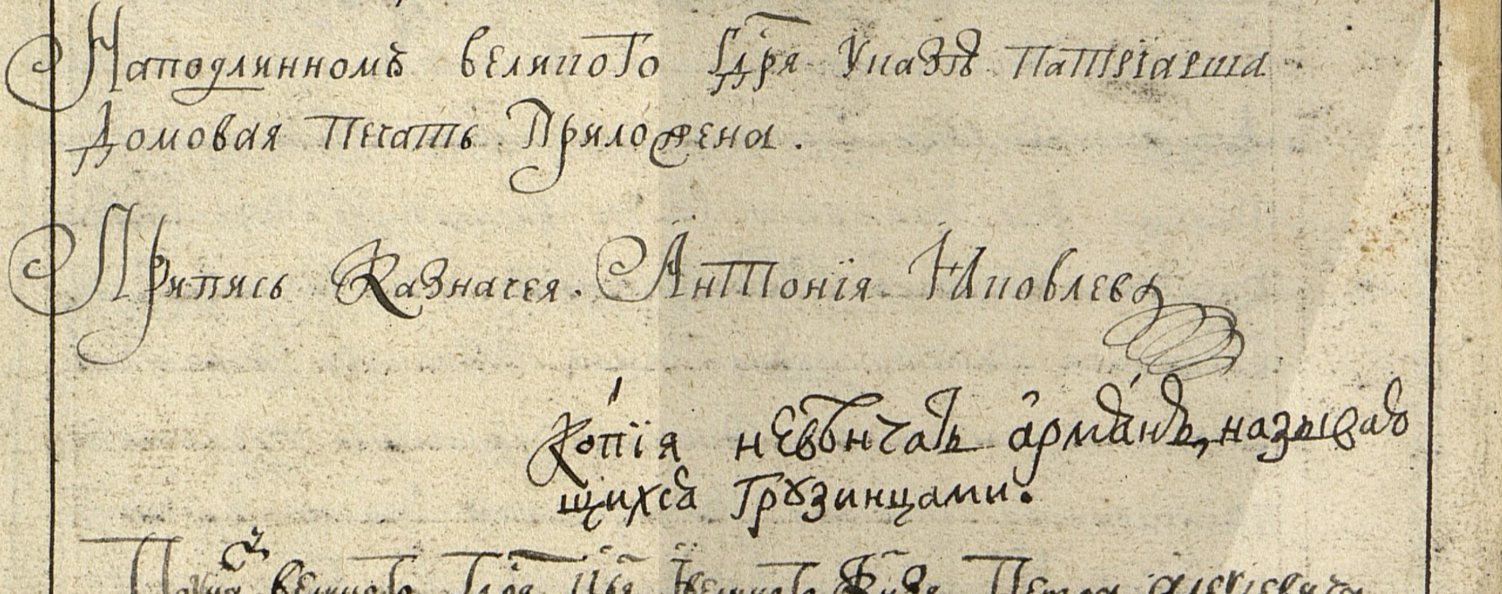 Наподлинномъ великого Гдря Указѣ Патріарша
Домовая Печать Приложена.
Припись Казначея Антонїя Яковлева
Копїя невѣнчать арманъ, называю
щихся Грузинцами.
великого Гдря Цря Ивеликого Кнзя Петра алексіевича